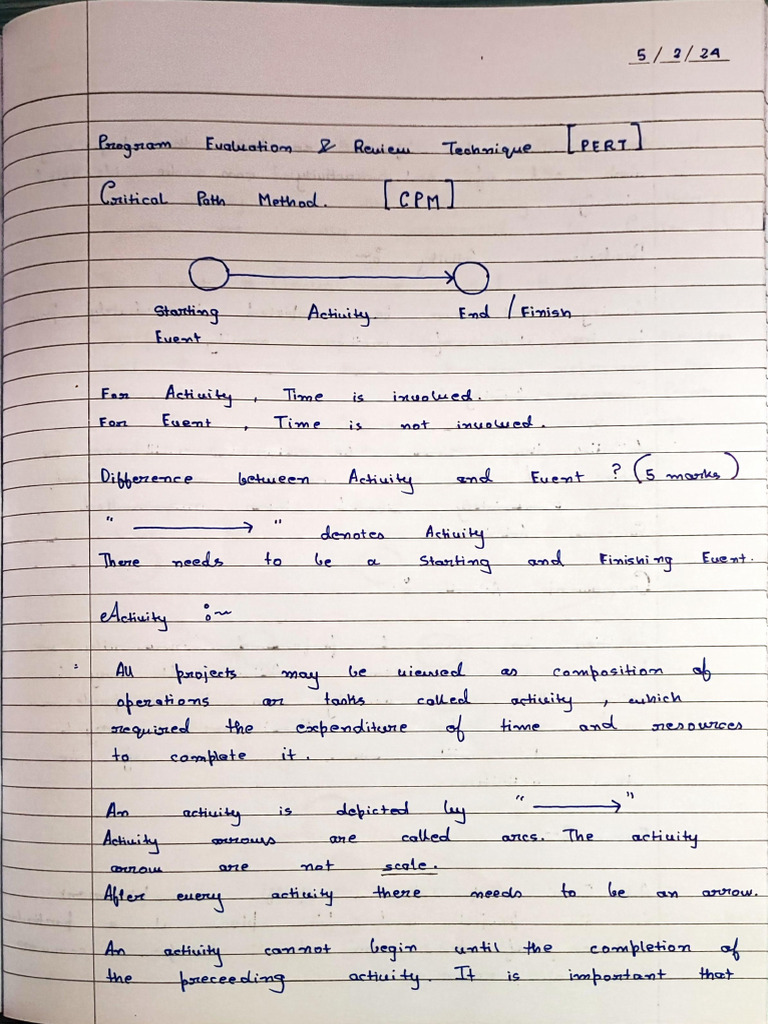 5/2/24
Program Evaluation & Review Technique [PERT]
Critical Path Method. [CPM]
Starting Activity. End / Finish
Event
For Activity, Time is involved.
For Event, Time is not involved.
Difference between Activity and Event ? (5 marks)
" → " denotes Activity
There needs to be a Starting and Finishing Event.
Activity :~
All projects may be viewed as composition of
operations or tasks called activity, which
required the expenditure of time and resources
to complete it.
An activity is depicted by " → "
Activity arrows are called arcs. The activity
arrow are not scale.
After every activity there needs to be an arrow.
An activity cannot begin until the completion of
the preceeding activity. It is important that